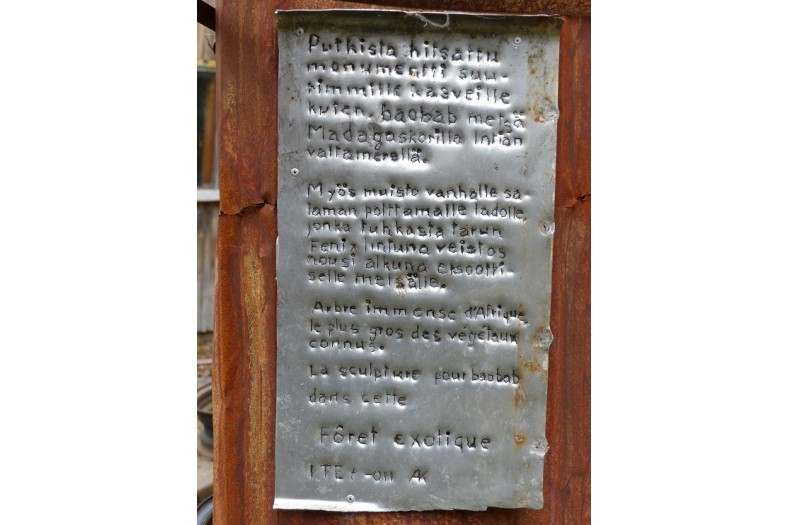 Putkista hitsattu
monumentti suu-
rimmille kasveille
kuten, baobab metsä
Madagaskarilla Intian
valtamerellä.
Myös muisto vanhalle sa-
laman polttamalle ladolle,
jonka tuhkasta tarun
Fenix lintuna veistos
nousi alkuna eksootti-
selle metsälle.
Arbre immense d'Afrique,
le plus gros des végétaux
connus.
La sculpture pour baobab
dans cette
Fôret exotique
ITE -011 AK